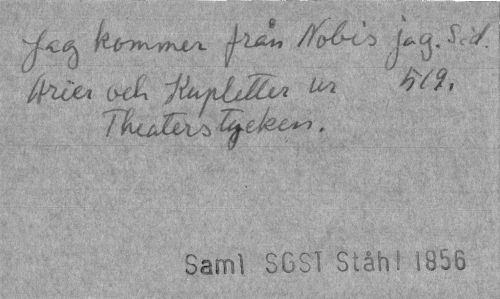 Jag kommer från Nobis jag. Sid.
Arier och Kupletter ur 519.
Theaterstycken.
Saml SGST Ståhl 1856